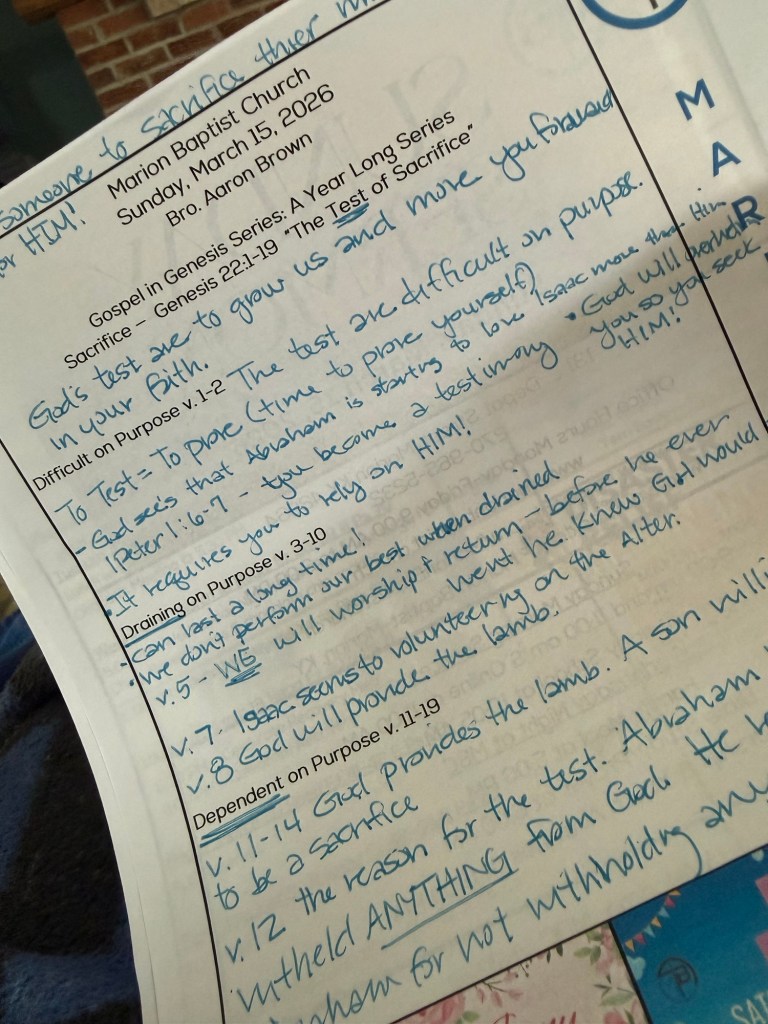 Someone to sacrifice thier
for HIM!
Marion Baptist Church
Sunday, March 15, 2026
Bro. Aaron Brown
Gospel in Genesis Series: A Year Long Series
Sacrifice – Genesis 22:1-19 "The Test of Sacrifice"
God's test are to grow us and move you forward
in your faith.
Difficult on Purpose v. 1-2 The test are difficult on purpose.
To Test = To prove (time to prove yourself)
- God see's that Abraham is starting to love Isaac more than Him
1 Peter 1:6-7 - you become a testimony
• God will
you so you seek
HIM!
• It requires you to rely on HIM!
Draining on Purpose v. 3-10
• can last a long time!
• we don't perform our best when drained
v.5 - WE will worship & return - before he ever
went he knew God would
v.7 - Isaac seems to volunteering on the Alter.
v.8 God will provide the lamb.
Dependent on Purpose v. 11-19
v. 11-14 God provides the lamb. A son
to be a sacrifice
v. 12 the reason for the test. Abraham
witheld ANYTHING from God. He
for not withholding
M
A
R
SAT